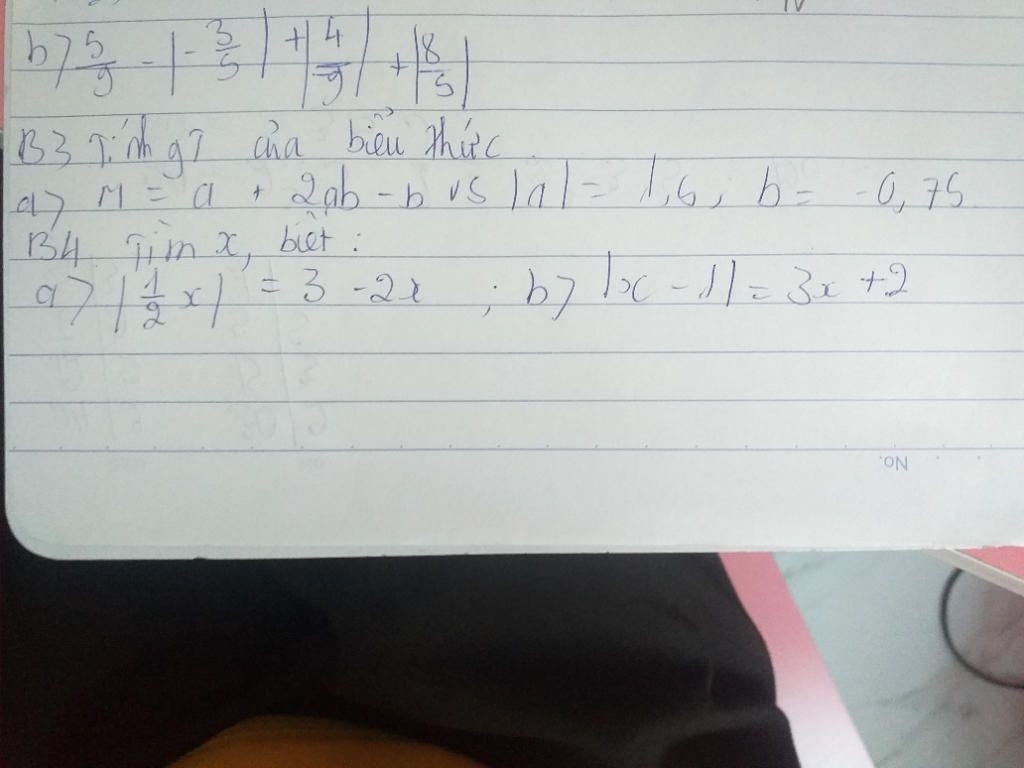 b) 5/9 - |-3/5| + |4/9| + |8/5|
B3 Tính gT của biểu thức.
a) M = a + 2ab - b vs |a| = 1,6, b = -0,75
B4 Tìm x, biết:
a) |1/2 x| = 3 - 2x ; b) |x - 1| = 3x + 2
No.